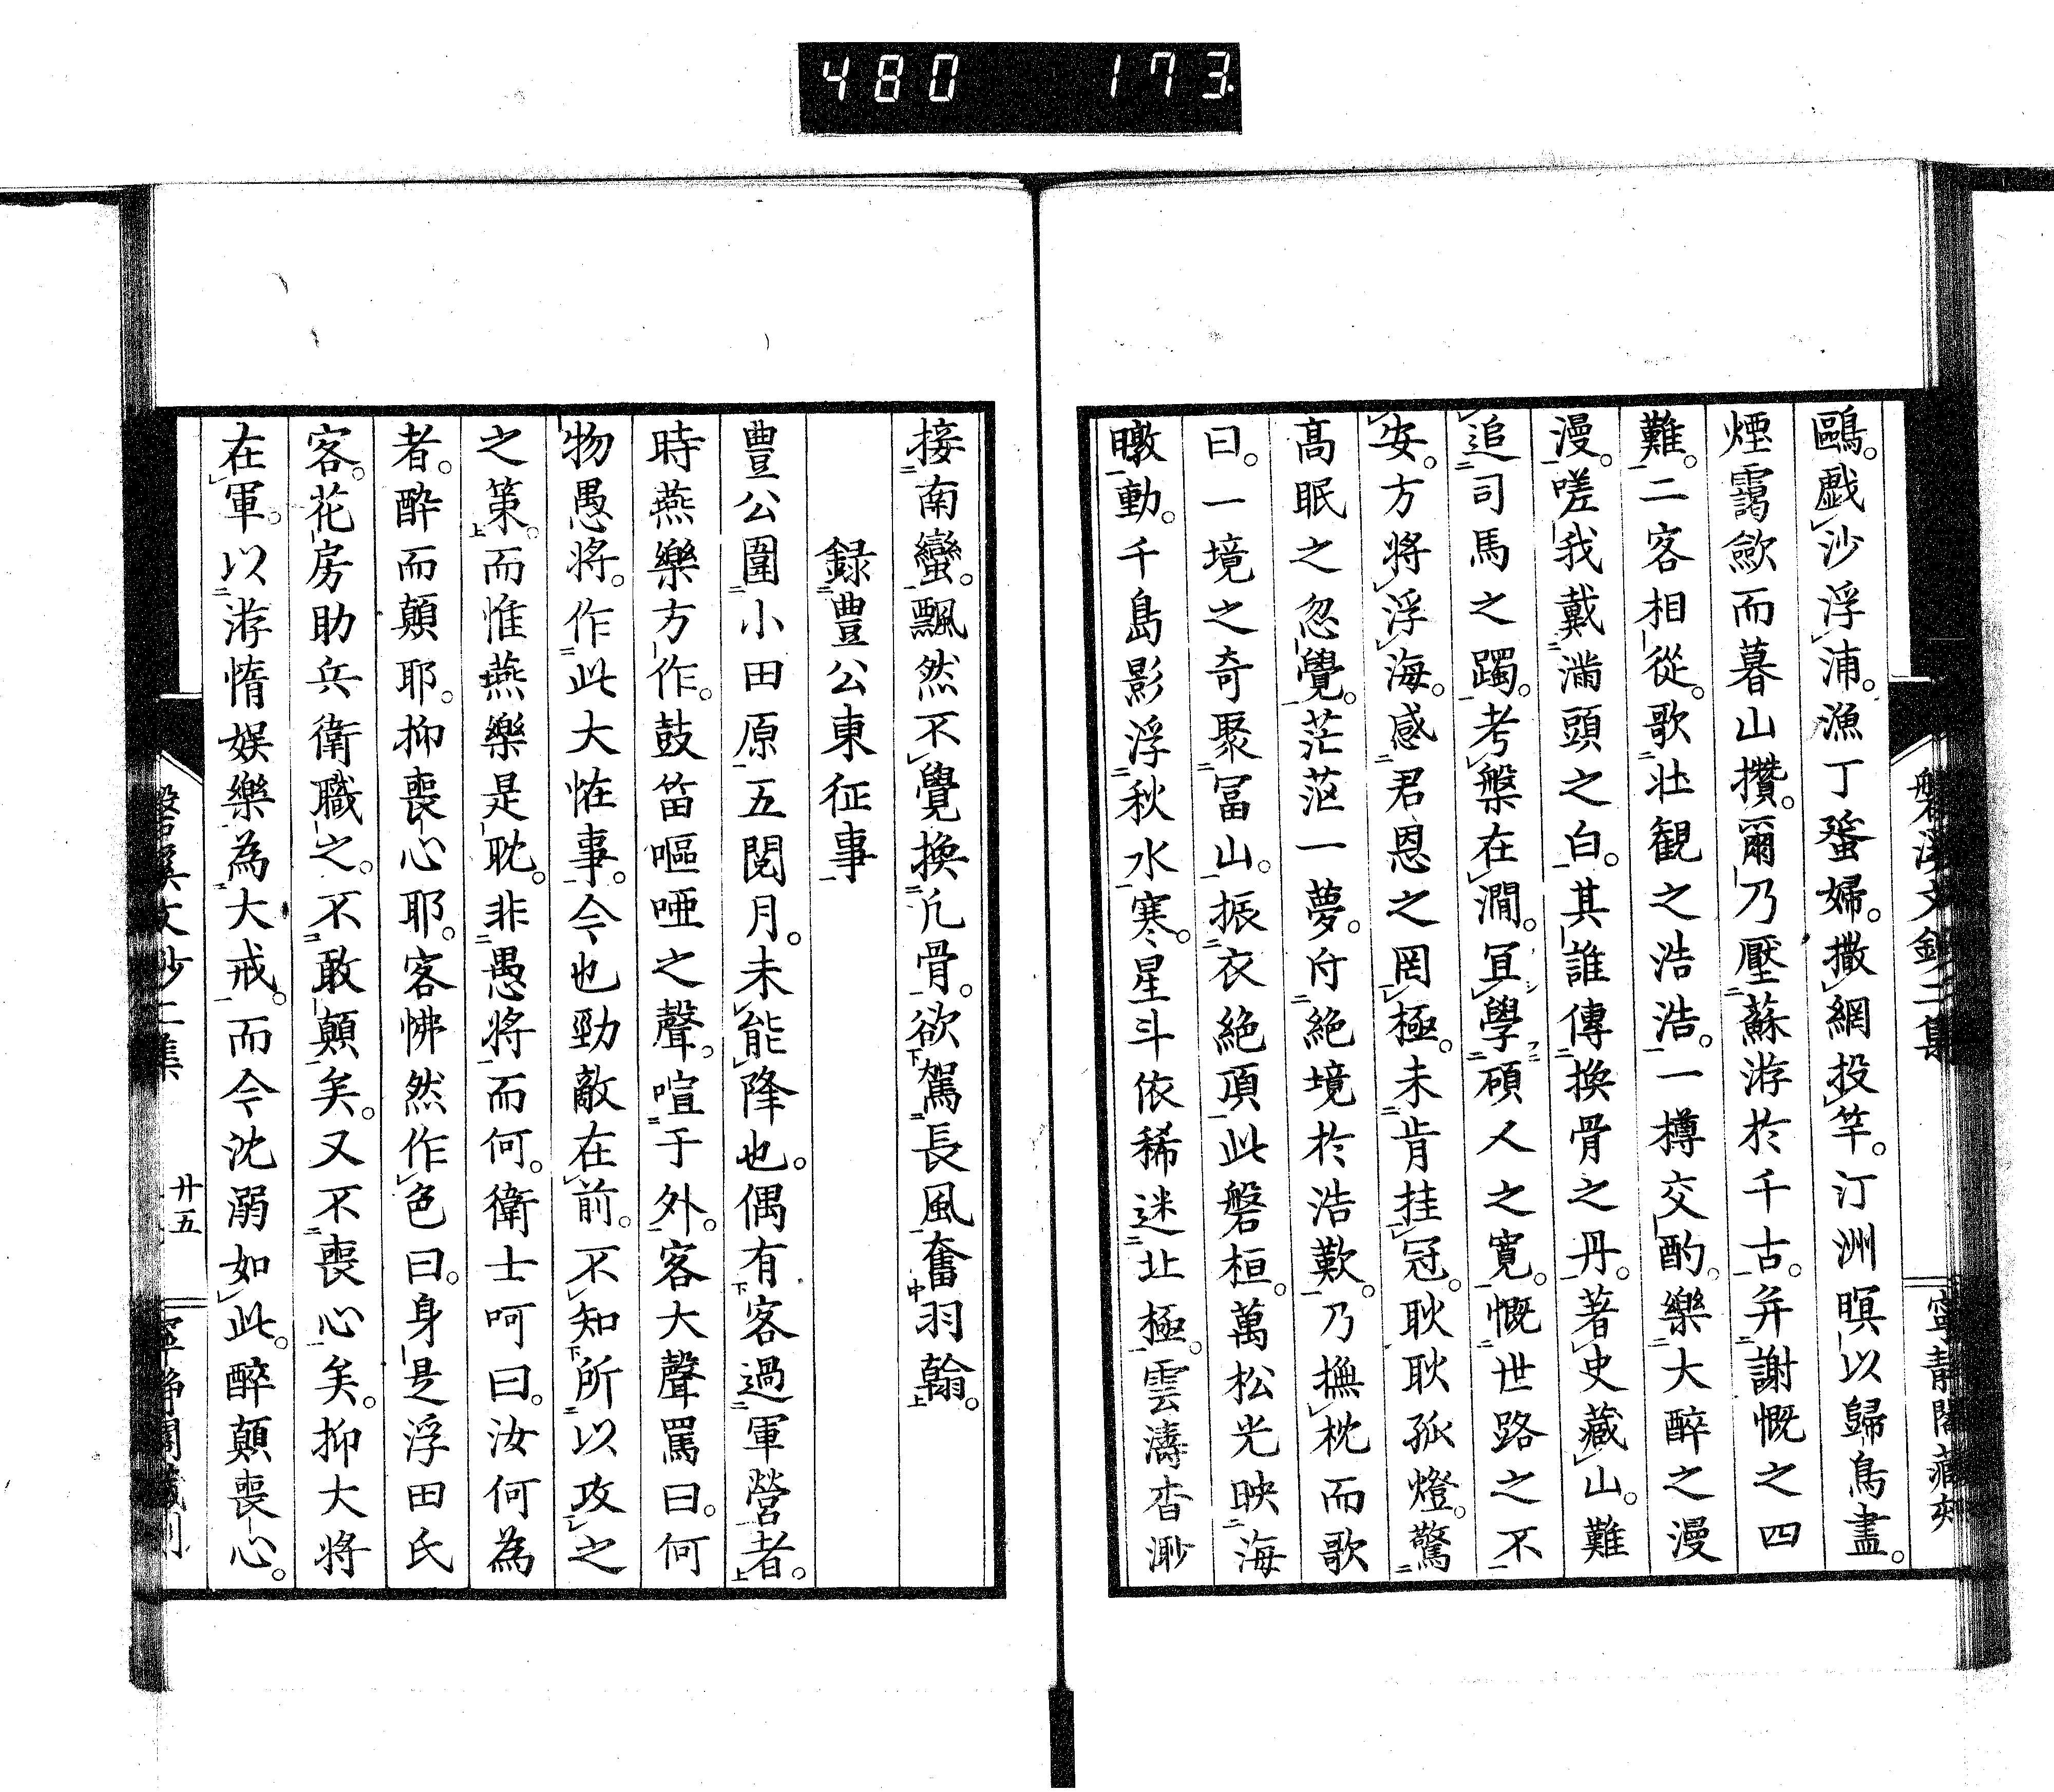 480 173.
磐溪文鈔二集
寧静閣蔵刻
鷗。戯沙浮浦。漁丁蜑婦。撒網投竿。汀洲暝以歸鳥盡。
煙靄歛而暮山攢。爾乃壓蘇游於千古。弁謝慨之四
難。二客相從。歌壮観之浩浩。一樽交酌。樂大醉之漫
漫。嗟我戴満頭之白。其誰傳換骨之丹。著史藏山。難
追司馬之躅。考槃在澗。冝學碩人之寛。慨世路之不
安。方将浮海。感君恩之罔極。未肯挂冠。耿耿孤燈。驚
髙眠之忽覺。茫茫一夢。付絶境於浩歎。乃撫枕而歌
曰。一境之奇聚冨山。振衣絶頂此磐桓。萬松光映海
暾動。千島影浮秋水寒。星斗依稀迷北極。雲濤杳渺
接南蠻。飄然不覺換凢骨。欲駕長風奮羽翰。
録豊公東征事
豊公圍小田原五閲月。未能降也。偶有客過軍營者。
時燕樂方作。鼓笛嘔唖之聲。喧于外。客大聲罵曰。何
物愚将。作此大恠事。今也勁敵在前。不知所以攻之
之策。而惟燕樂是耽。非愚将而何。衛士呵曰。汝何為
者。酔而顛耶。抑喪心耶。客怫然作色曰。身是浮田氏
客。花房助兵衛職之。不敢顛矣。又不喪心矣。抑大将
在軍。以游惰娯樂為大戒。而今沈溺如此。醉顛喪心。
磐溪文鈔二集
廿五
寧静閣蔵刻